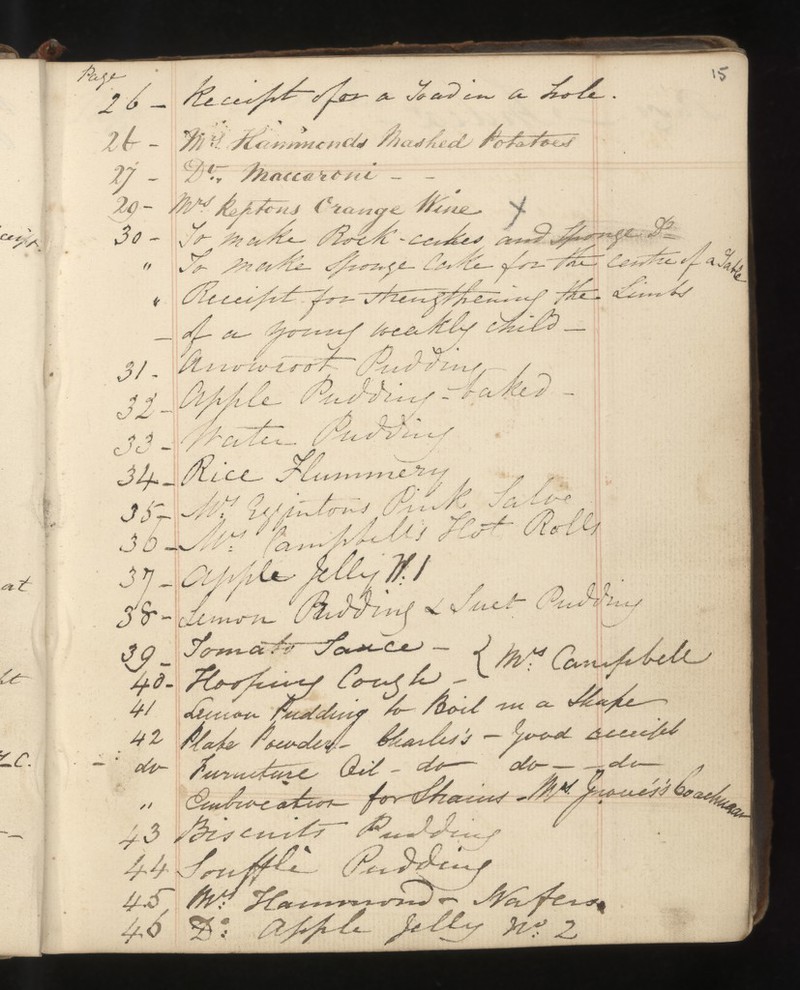 Page
15
26 - Receipt for a Toad in a hole.
26 - Mrs Hammonds Mashed Potatoes
27 - Do. Maccaroni - -
29 - Mrs Reptons Orange Wine x
30 - To make Rock-cakes, and Sponge Do
" To make Sponge Cake for the centre of a Table
" Receipt for strengthening the Limbs
- of a young weakly child -
31 - Arrowroot Pudding
32 - Apple Pudding - baked -
33 - Water Pudding
34 - Rice Flummery
35 - Mrs Eggintons Pink Salve
36 - Mrs Campbell's Hot Rolls
37 - Apple Jelly No: 1
38 - Lemon Pudding & Suet Pudding
39 - Tomato Sauce - { Mrs Campbell
40 - Hooping Cough -
41 Lemon Pudding to Boil in a Shape
42 Plate Powder - Charles's - Good receipt
do Furniture Oil - do do - - do -
" Embrocation for Strains - Mrs Coachman
43 Biscuits Pudding
44 Soufflé Pudding
45 Mrs Hammond - Wafers
46 Do: Apple Jelly No: 2